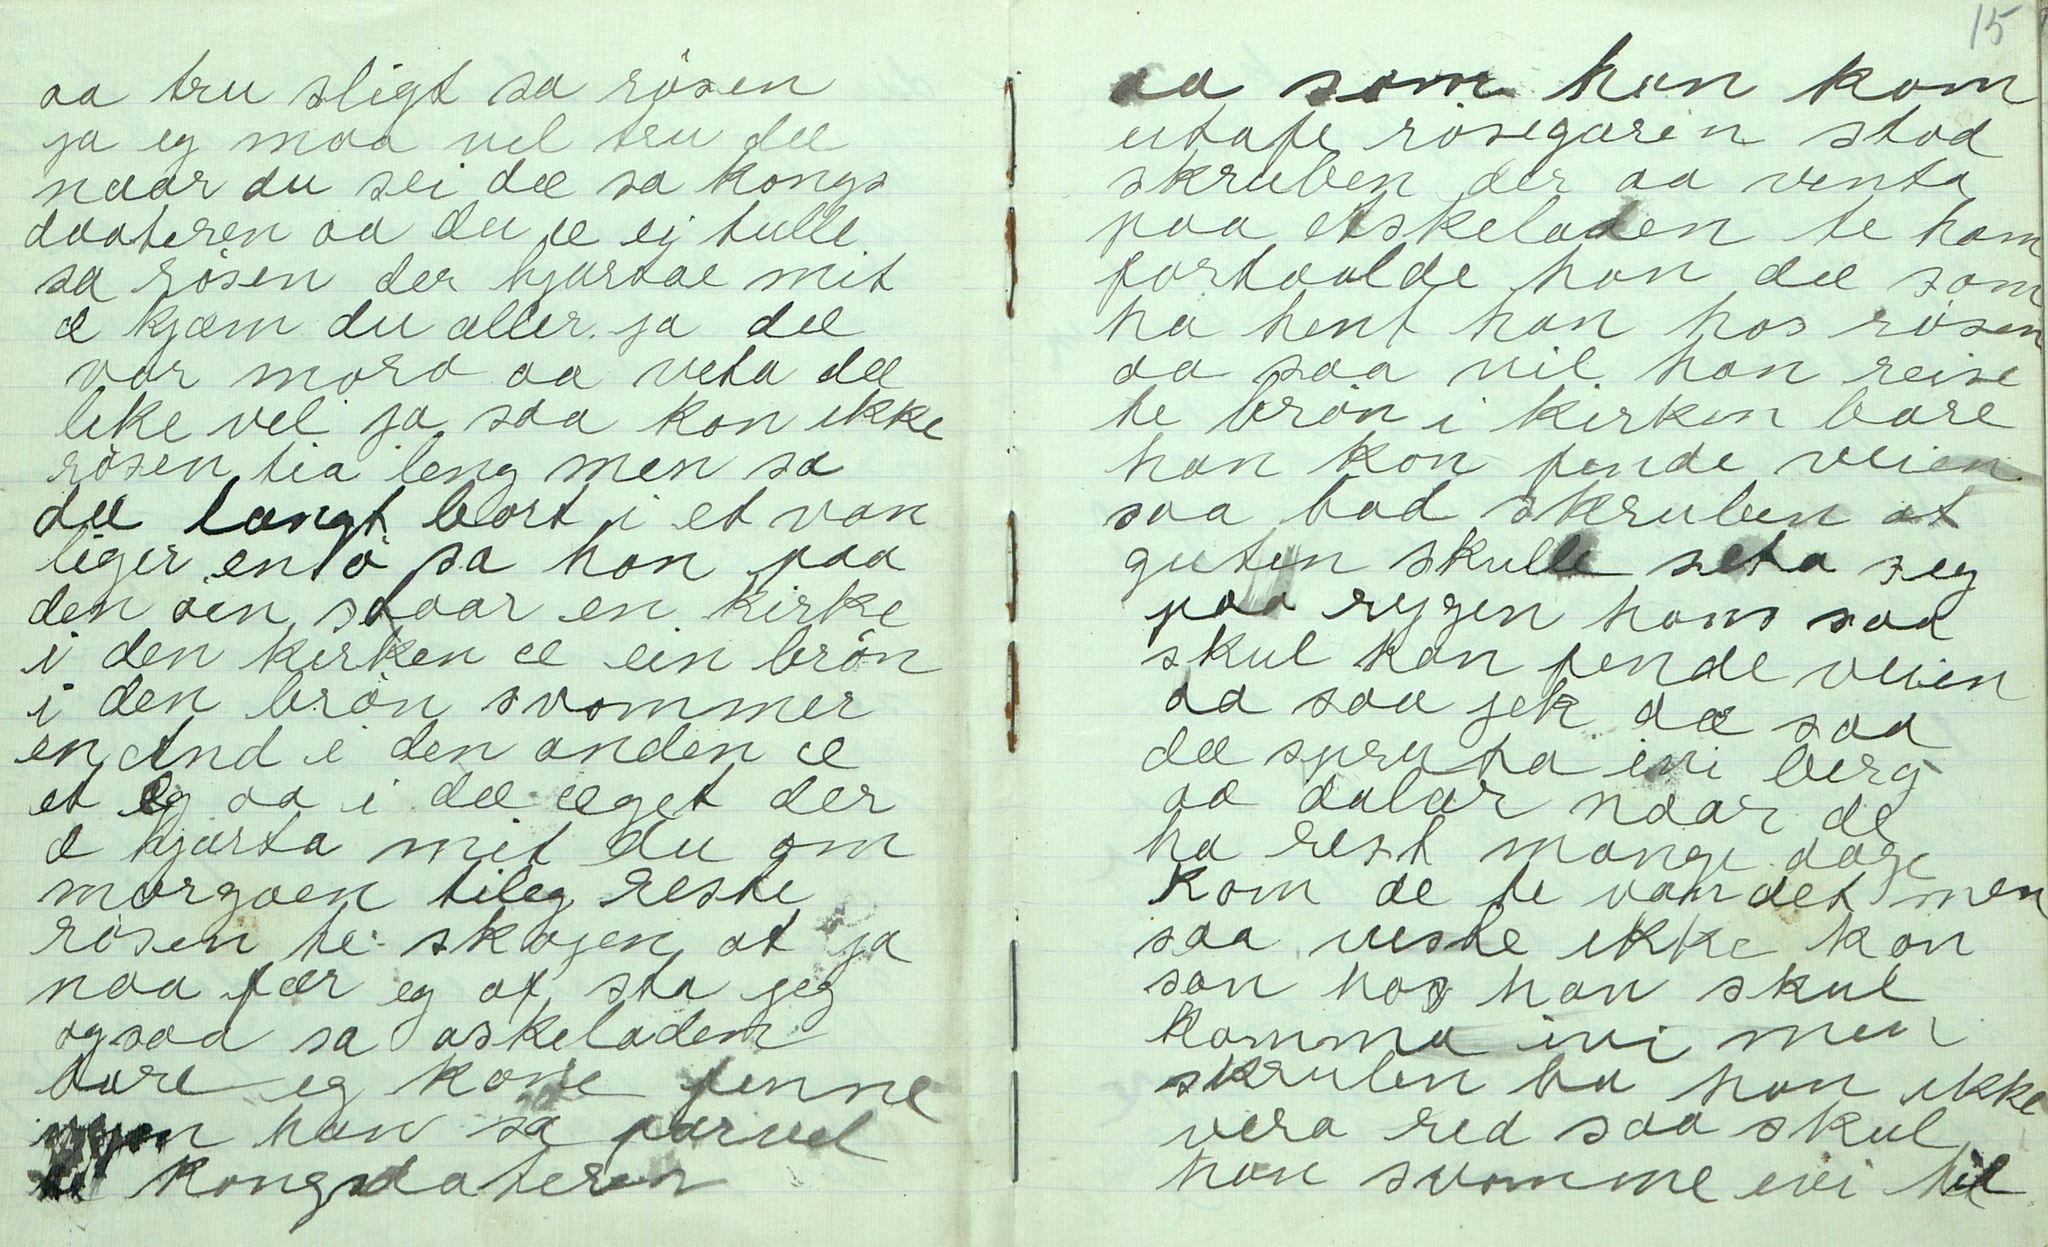 aa tru sligt sa rösen
ja eg maa vel tru dæ
naar du sei dæ sa kongs
daateren aa du æ ej tulle
sa rösen der hjartae mit
æ kjæm du aller ja dæ
var moro aa veta dæ
like vel ja saa kon ikke
rösen tia leng men sa
dæ langt bort i et van
liger en ö sa han paa
den öen staar en kirke
i den kirken æ ein brön
i den brön svømmer
en And i den anden æ
et eg aa i dæ æget der
æ hjarta mit du om
morgoen tileg reste
rösen te skogen at ja
naa fær eg af sta jeg
ogsaa sa askeladen
bare eg kone finne
vegen han sa farvel
te kongdateren
15
aa som han kom
utafe rösegaren stod
skruben der aa venta
paa etskeladen te ham
fortaalde han dæ som
ha hent han hos rösen
aa saa vil han reise
te brön i kirken bare
han kon fende veien
saa bad skruben at
guten skulle seta seg
paa rygen hans saa
skul han fende veien
aa saa jek dæ saa
dæ spruta ivi berg
aa dalar naar de
ha rest mange dage
kom de te vandet men
saa veste ikke kon
son hos han skul
komma ivi men
skruben ba han ikke
vera red saa skul
han svomme ivi til